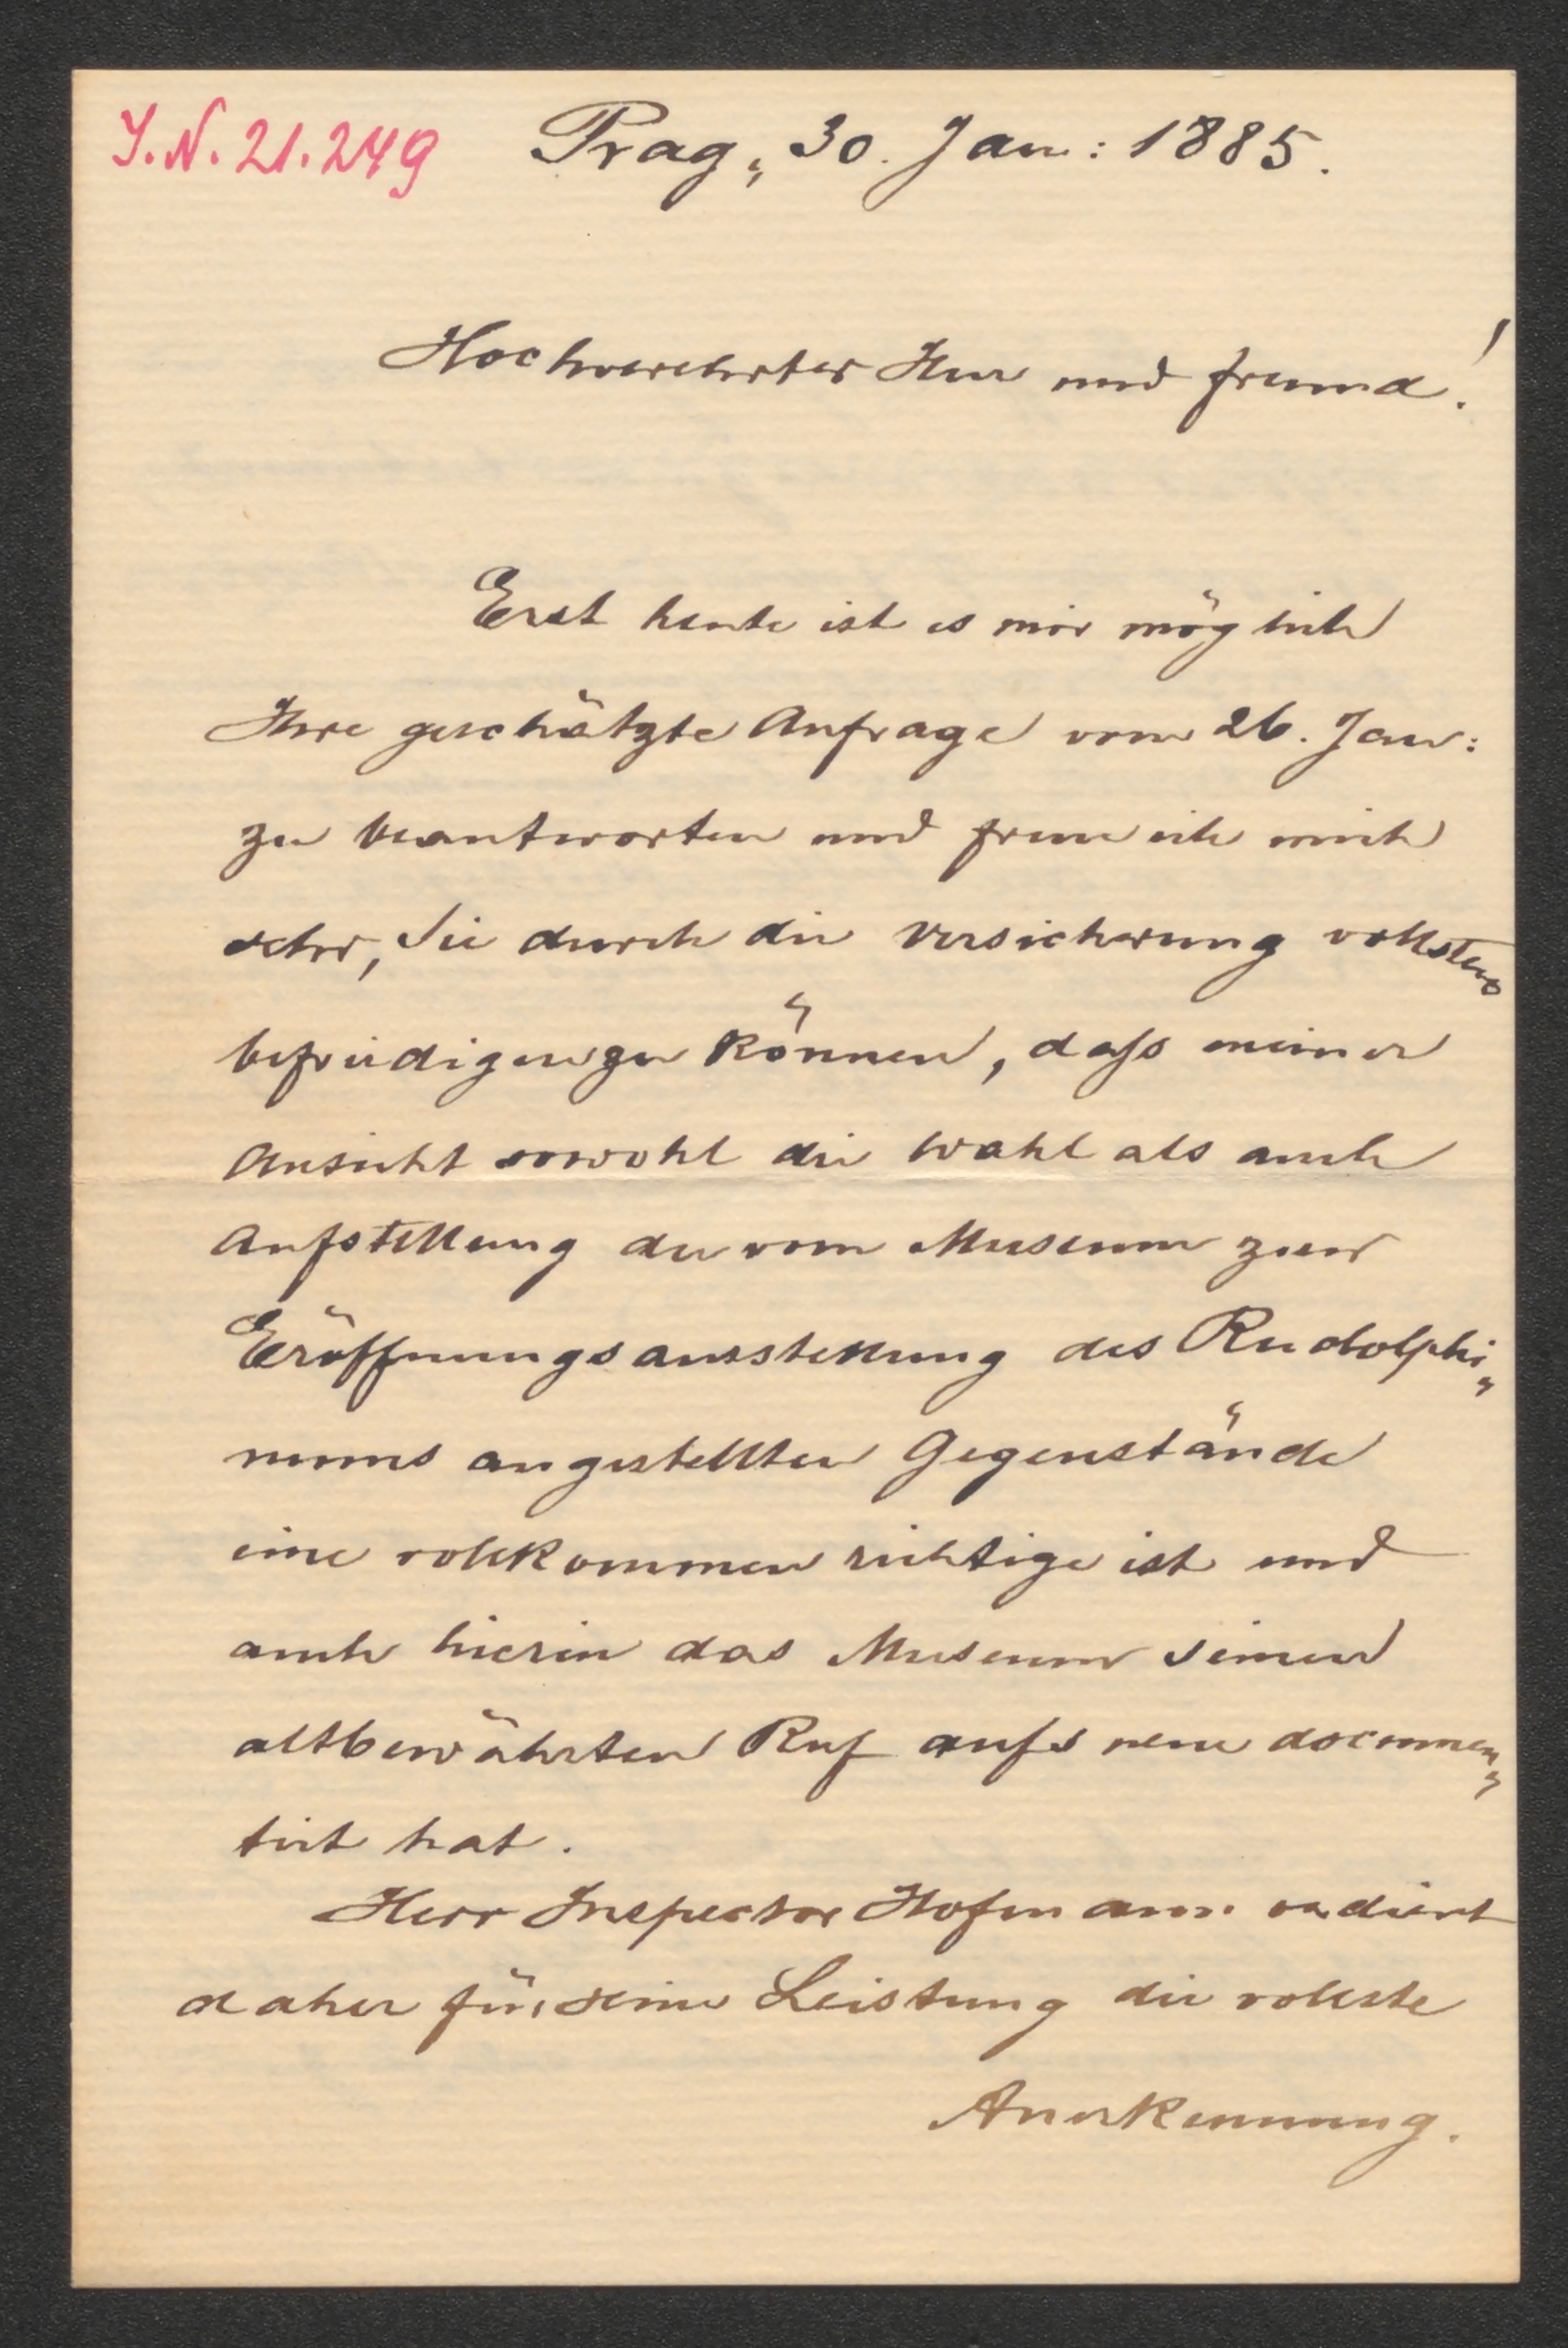 J.N. 21.249 Prag, 30. Jan: 1885.
Hochverehrter Herr und Freund!
Erst heute ist es mir möglich
Ihre geschätzte Anfrage vom 26. Jan:
zu beantworten und freue ich mich
sehr, Sie durch die Versicherung vollstens
befriedigen zu können, dass meiner
Ansicht sowohl die Wahl als auch
Aufstellung der vom Museum zur
Eröffnungsausstellung des Rudolphi„
nums angestellten Gegenstände
eine vollkommen richtige ist und
auch hierin das Museum seinen
altbewährten Ruf aufs neue documen„
tirt hat.
Herr Inspector Hofmann verdient
daher für seine Leistung die vollste
Anerkennung.